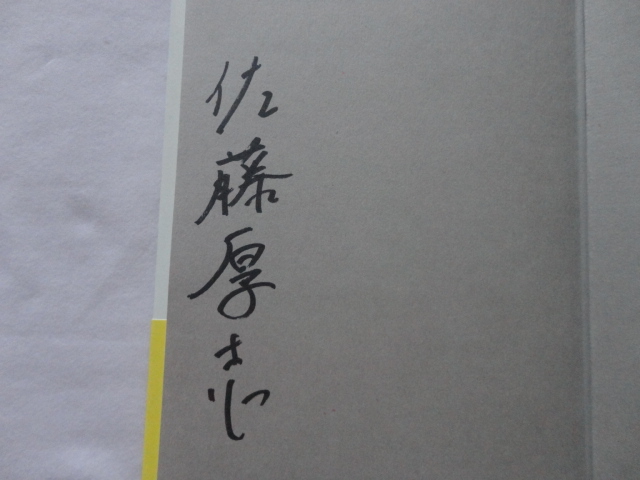 佐藤厚志